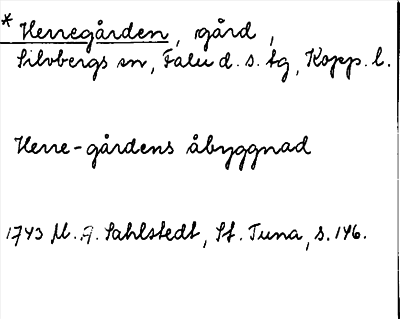 * Herregården, gård,
Silvbergs sn, Falu d. s. tg, Kopp. l.
Herre-gårdens åbyggnad
1743 M. A. Sahlstedt, St. Tuna, s. 146.